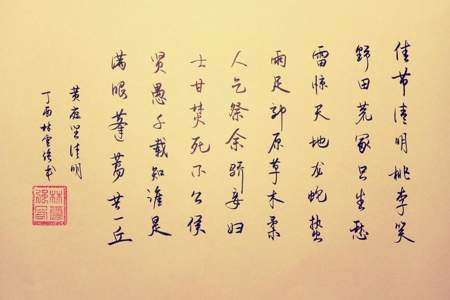 佳节清明桃李笑
野田荒冢只生愁
雷惊天地龙蛇蛰
雨足郊原草木柔
人乞祭余骄妾妇
士甘焚死不公侯
贤愚千载知谁是
满眼蓬蒿共一丘
黄庭坚清明
丁酉林书